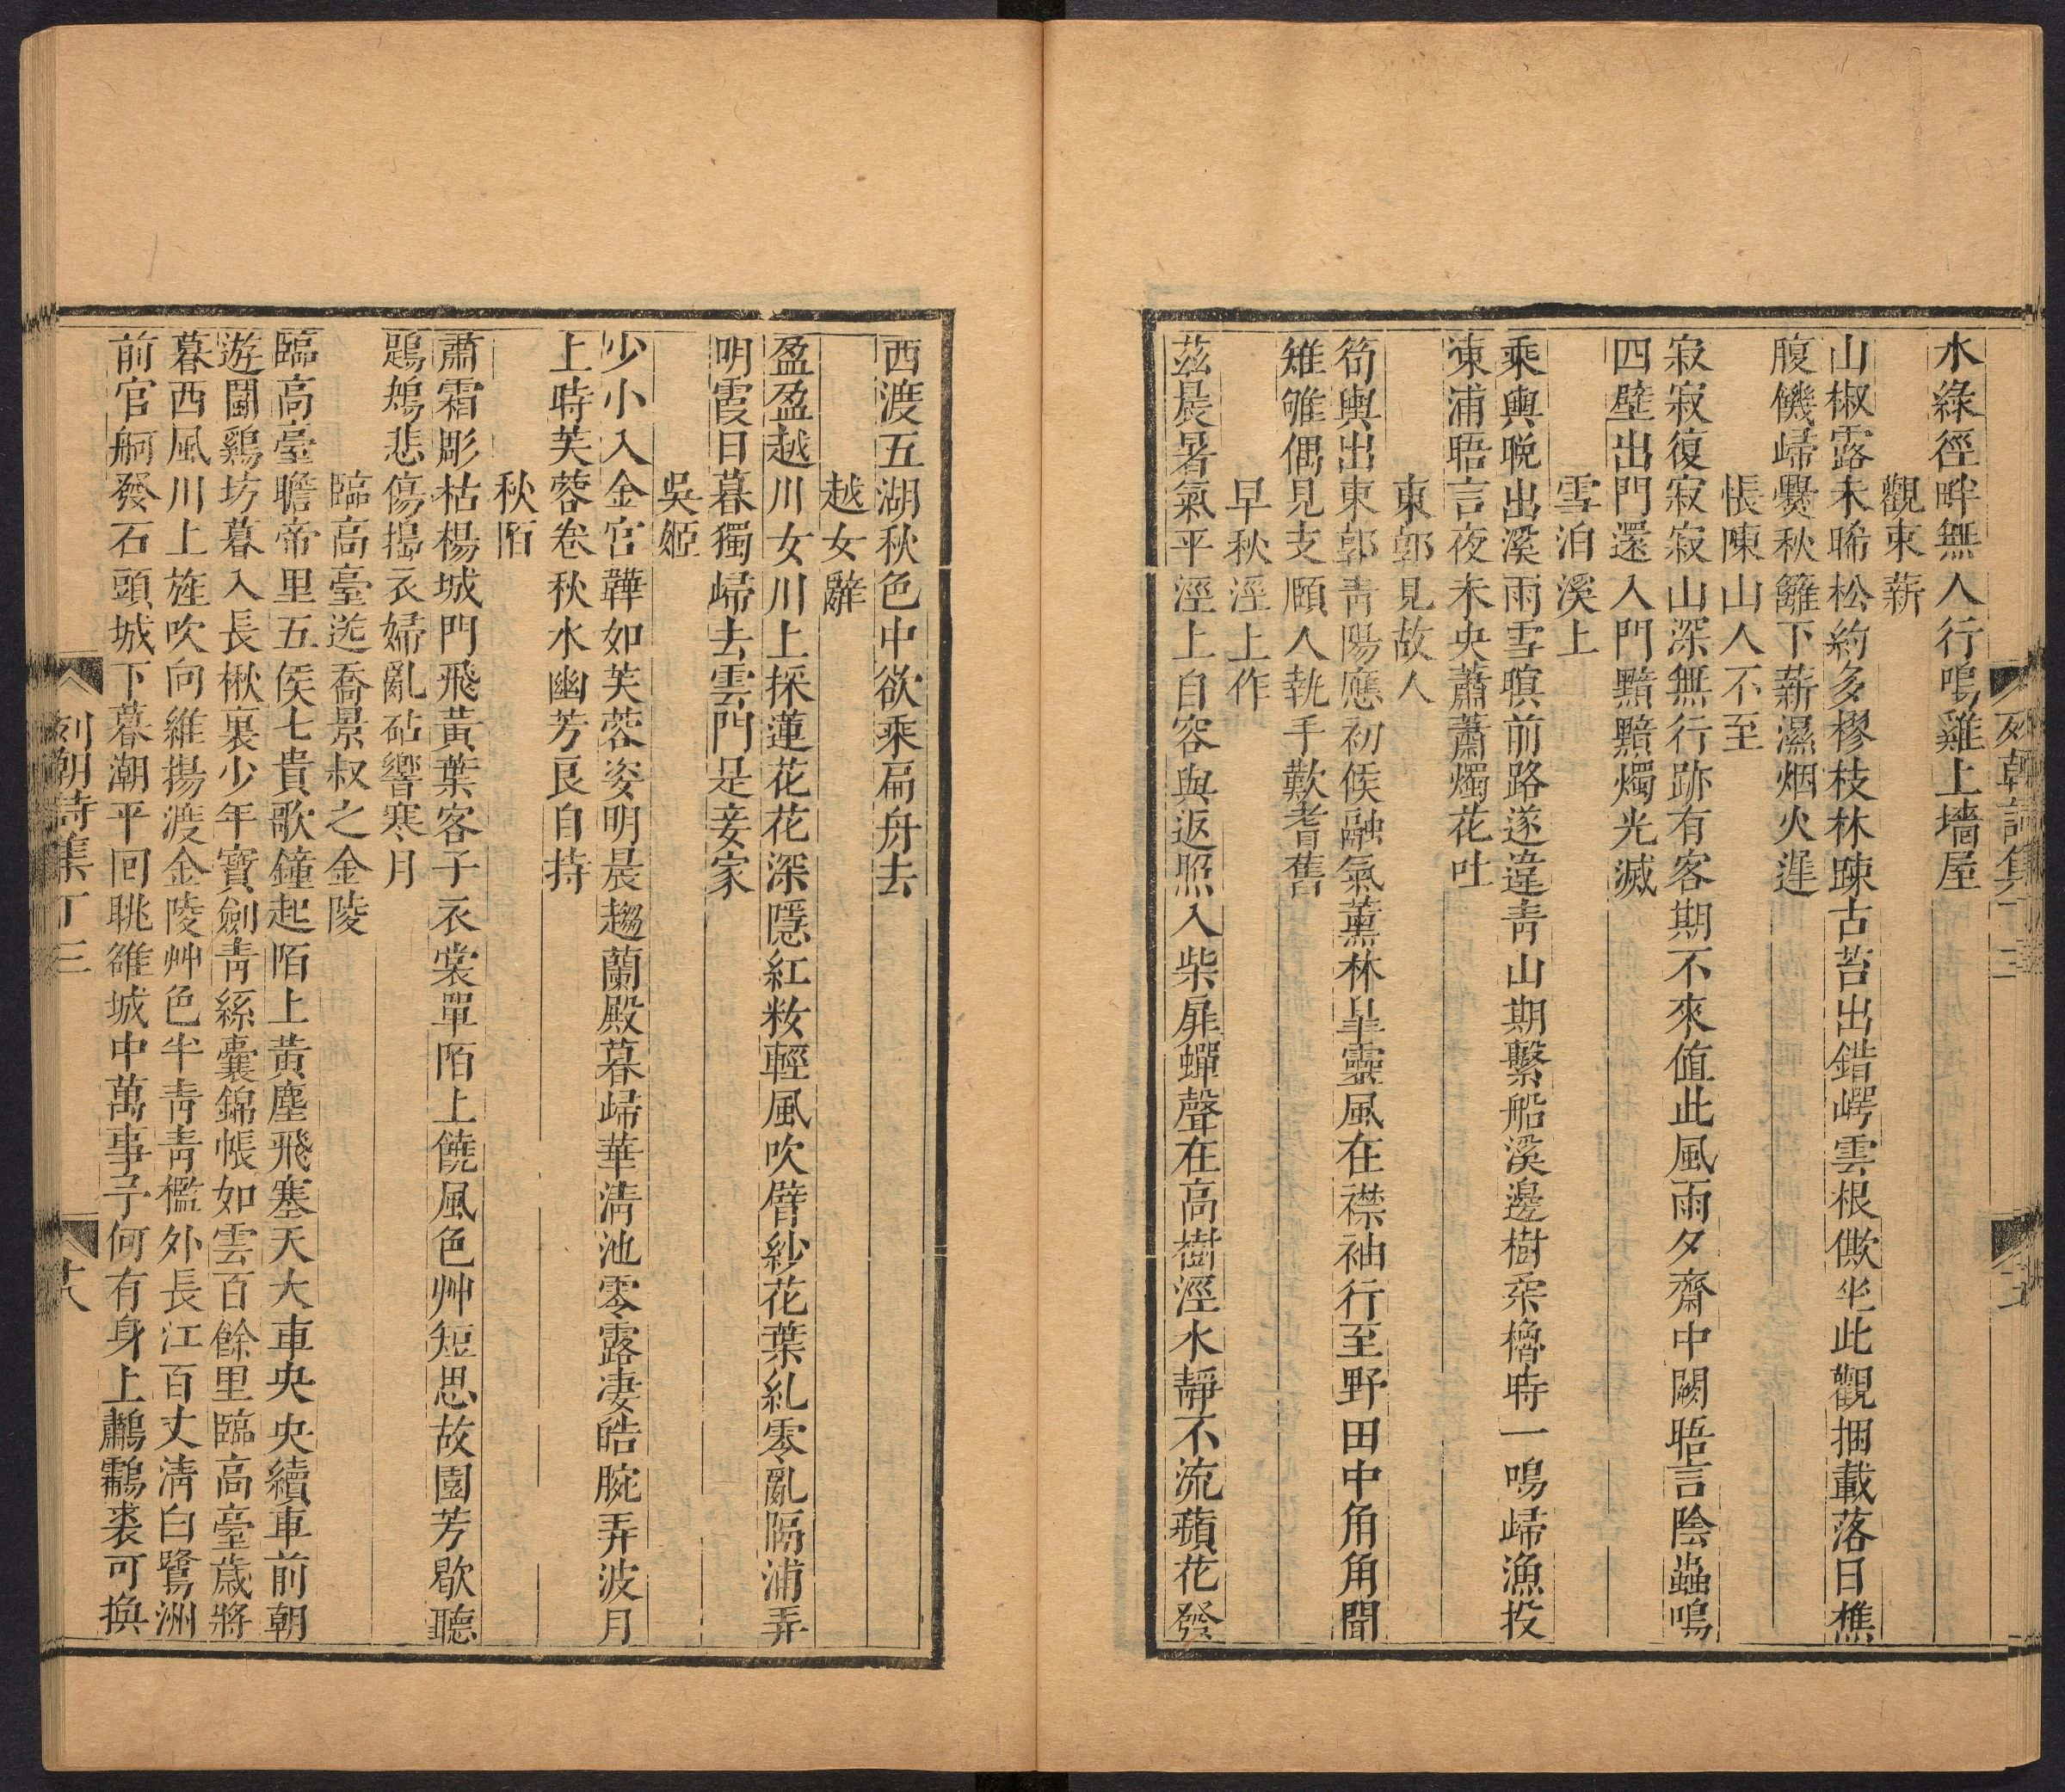 水綠徑畔無人行鳴雞上墻屋
觀束薪
山椒露未晞松約多樛枝林踈古苔出錯崿雲根㑰坐此觀捆載落日樵
腹饑歸㸑秋籬下薪濕烟火遲
悵陳山人不至
寂寂復寂寂山深無行跡有客期不來值此風雨夕齋中闕晤言陰蟲鳴
四壁出門還入門黯黯燭光滅
雪泊溪上
乘輿興晚出溪雨雪暝前路遂違青山期繫船溪邊樹柔櫓時一鳴歸漁投
東浦晤言夜未央蕭蕭燭花吐
東郭見故人
筍輿出東郭青陽應初候融氣薰林皐靈風在襟袖行至野田中角角聞
雉雊偶見支頤人執手歎耆舊
早秋涇上作
茲晨暑氣平涇上自容與返照入柴扉蟬聲在高樹涇水靜不流蘋花發
列朝詩集丁三
西渡五湖秋色中欲乘扁舟去
越女辭
盈盈越川女川上採蓮花花深隱紅粧輕風吹臂紗花葉糺零亂隔浦弄
明霞日暮獨歸去雲門是妾家
吳姬
少小入金宮韡如芙蓉姿明晨趨蘭殿暮歸華清池零露淒皓腕弄波月
上時芙蓉卷秋水幽芳良自持
秋陌
肅霜彫枯楊城門飛黃葉客子衣裳單陌上饒風色艸短思故園芳歇聽
鶗鴂悲傷搗衣婦亂砧響寒月
臨高臺送喬景叔之金陵
臨高臺瞻帝里五侯七貴歌鐘起陌上黃塵飛塞天大車央央續車前朝
遊鬪鷄坊暮入長楸裏少年寶劍靑絲囊錦帳如雲百餘里臨高臺歲將
暮西風川上旌吹向維揚渡金陵艸色半靑靑檻外長江百丈清白鷺洲
前官舸發石頭城下暮潮平回眺雒城中萬事子何有身上鷫鸘裘可換
列朝詩集丁三